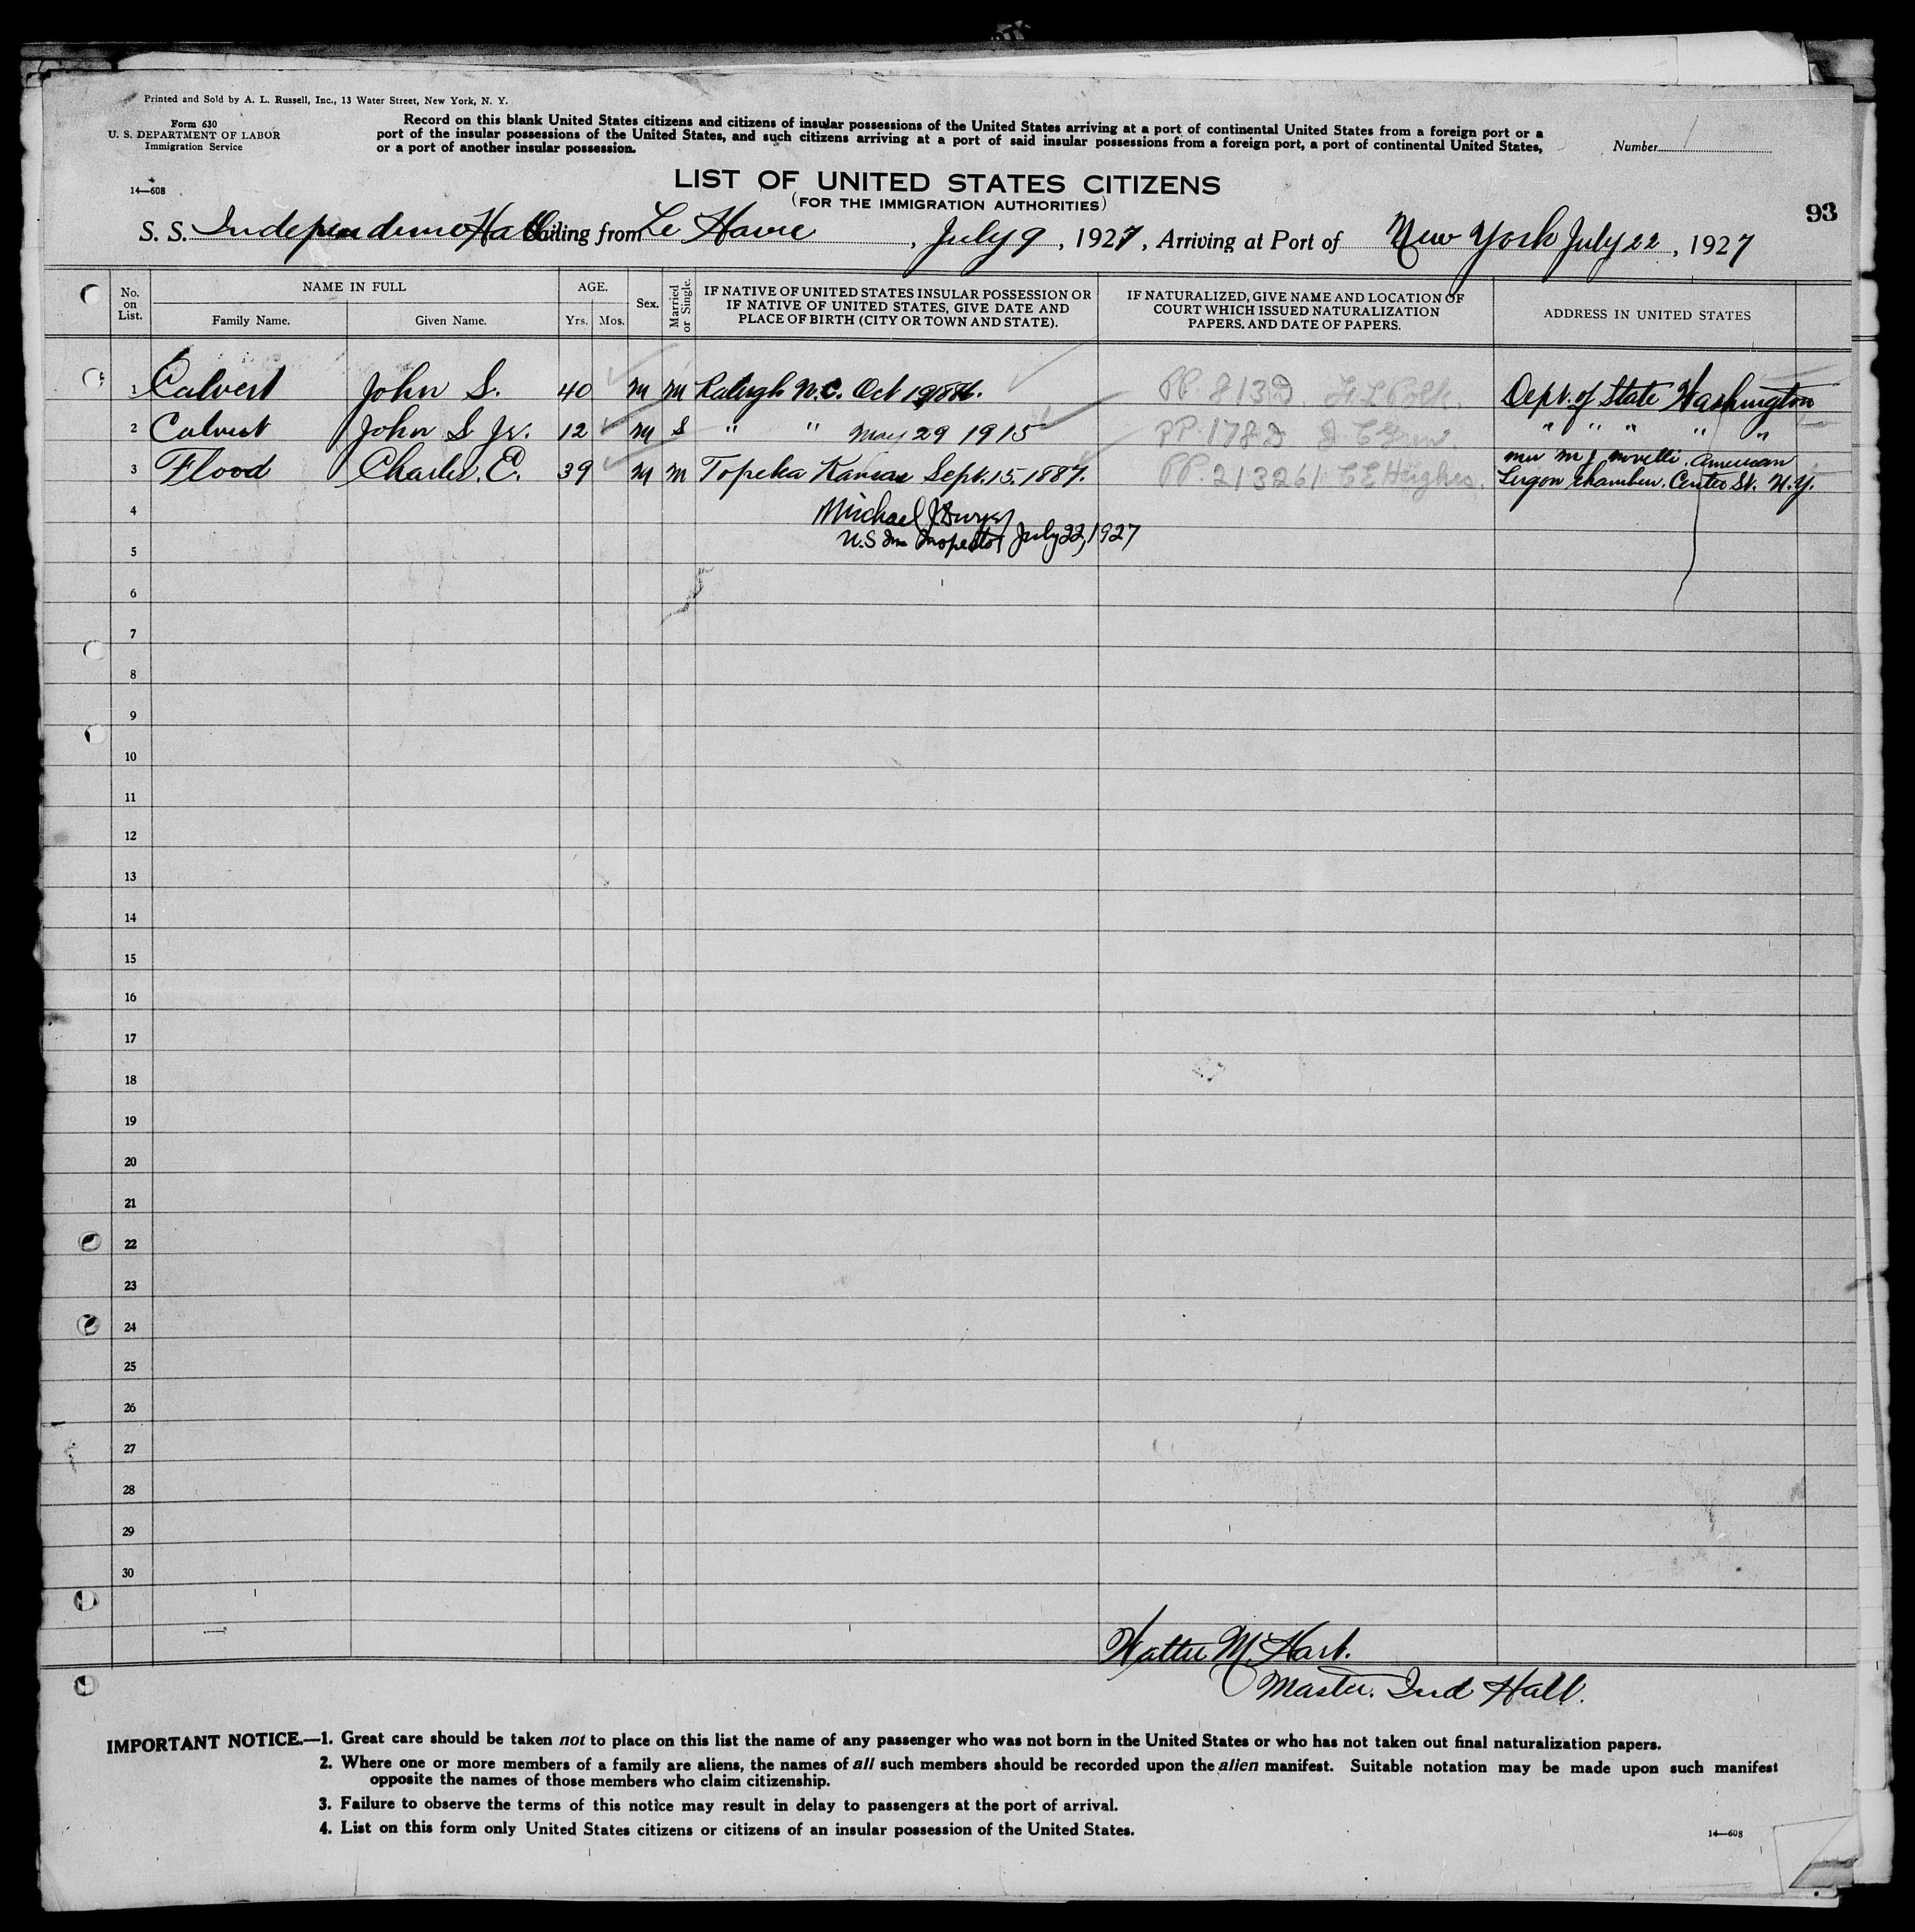 Printed and Sold by A. L. Russell, Inc., 13 Water Street, New York, N. Y.
Form 630
U. S. DEPARTMENT OF LABOR
Immigration Service
14—608
Record on this blank United States citizens and citizens of insular possessions of the United States arriving at a port of continental United States from a foreign port or a
port of the insular possessions of the United States, and such citizens arriving at a port of said insular possessions from a foreign port, a port of continental United States,
or a port of another insular possession.
Number 1
LIST OF UNITED STATES CITIZENS
(FOR THE IMMIGRATION AUTHORITIES)
93
S. S. Independence Hall Sailing from Le Havre, July 9, 1927, Arriving at Port of New York July 22, 1927
No. on List.
NAME IN FULL
Family Name.
Given Name.
AGE.
Yrs. Mos.
Sex.
Married or Single.
IF NATIVE OF UNITED STATES INSULAR POSSESSION OR
IF NATIVE OF UNITED STATES, GIVE DATE AND
PLACE OF BIRTH (CITY OR TOWN AND STATE).
IF NATURALIZED, GIVE NAME AND LOCATION OF
COURT WHICH ISSUED NATURALIZATION
PAPERS, AND DATE OF PAPERS.
ADDRESS IN UNITED STATES
1 Calvert John S. 40 M M Raleigh N.C. Oct 1886. PP. 813D F L Polk. Dept. of State Washington
2 Calvert John S Jr. 12 M S " " May 29 1915 PP. 178D J. C Grew. " " " " "
3 Flood Charles. E. 39 M M Topeka Kansas Sept. 15. 1887. PP. 213261 C E Hughes. M J Novelli. American
Legion Chamber. Centre St. N.Y.
4 Michael J
5 U.S Imm Inspector July 22, 1927
6
7
8
9
10
11
12
13
14
15
16
17
18
19
20
21
22
23
24
25
26
27
28
29
30
Walter M. Hart.
Master. Ind Hall.
IMPORTANT NOTICE.—1. Great care should be taken not to place on this list the name of any passenger who was not born in the United States or who has not taken out final naturalization papers.
2. Where one or more members of a family are aliens, the names of all such members should be recorded upon the alien manifest. Suitable notation may be made upon such manifest
opposite the names of those members who claim citizenship.
3. Failure to observe the terms of this notice may result in delay to passengers at the port of arrival.
4. List on this form only United States citizens or citizens of an insular possession of the United States.
14—608